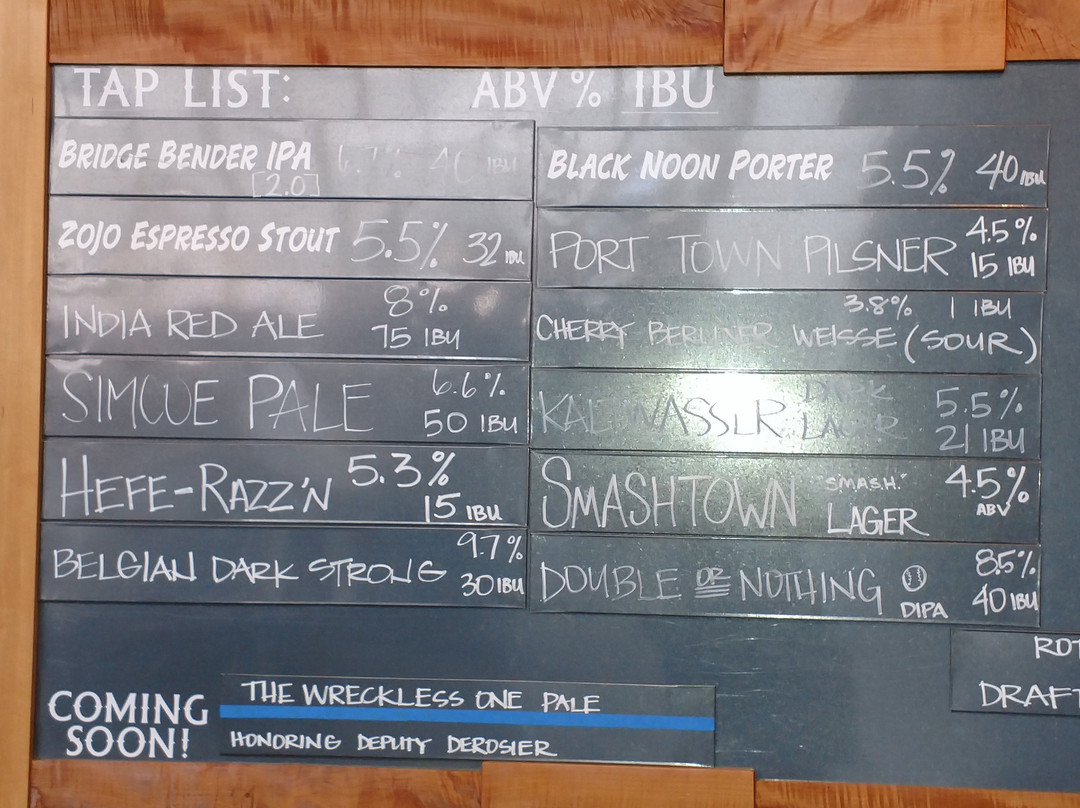 TAP LIST: ABV % IBU
BRIDGE BENDER IPA IBU
[2.0]
ZOJO ESPRESSO STOUT 5.5% 32 IBU
INDIA RED ALE 8% 75 IBU
SIMCOE PALE 6.6% 50 IBU
HEFE-RAZZ'N 5.3% 15 IBU
BELGIAN DARK STRONG 9.7% 30 IBU
BLACK NOON PORTER 5.5% 40 IBU
PORT TOWN PILSNER 4.5% 15 IBU
3.8% 1 IBU
CHERRY BERLINER WEISSE (SOUR)
DARK LAGER 5.5% 21 IBU
SMASHTOWN "S.M.A.S.H." LAGER 4.5% ABV
DOUBLE OR NOTHING DIPA 8.5% 40 IBU
ROT
DRAFT
COMING SOON!
THE WRECKLESS ONE PALE
HONORING DEPUTY DEROSIER